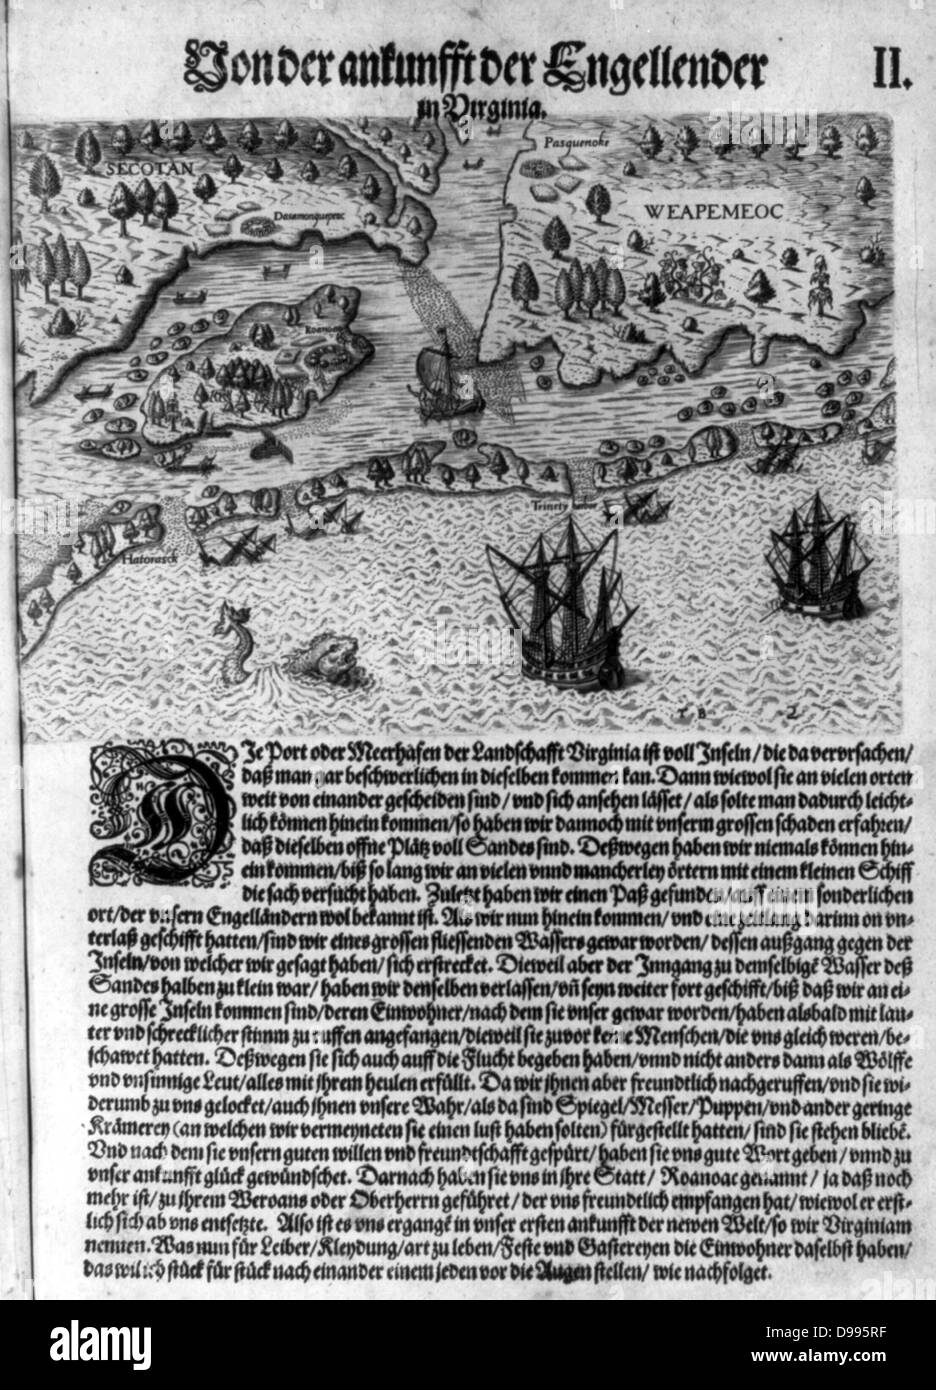 Von der ankunfft der Engellender II.
in Virginia.
SECOTAN
Pasquenoke
WEAPEMEOC
Dasamonquepeuc
Roanoac
Trinety harbor
Hatorasck
T B 2
DJe Port oder Meerhäfen der Landschafft Virginia ist voll Inseln / die da vervrsachen /
daß man gar beschwerlichen in dieselben kommen kan. Dann wiewol sie an vielen orten
weit von einander gescheiden sind / vnd sich ansehen lässet / als solte man dadurch leicht-
lich können hinein kommen / so haben wir dannoch mit vnserm grossen schaden erfahren /
daß dieselben offne Plätz voll Sandes sind. Deßwegen haben wir niemals können hin-
ein kommen / biß so lang wir an vielen vnnd mancherley örtern mit einem kleinen Schiff
die sach versucht haben. Zuletzt haben wir einen Paß gefunden / auff einem sonderlichen
ort / der vnsern Engelländern wol bekannt ist. Als wir nun hinein kommen / vnd eine zeitlang darinn on vn-
terlaß geschifft hatten / sind wir eines grossen fliessenden Wassers gewar worden / dessen außgang gegen der
Inseln / von welcher wir gesagt haben / sich erstrecket. Dieweil aber der Inngang zu demselbigē Wasser deß
Sandes halben zu klein war / haben wir denselben verlassen / vñ seyn weiter fort geschifft / biß daß wir an ei-
ne grosse Inseln kommen sind / deren Einwohner / nach dem sie vnser gewar worden / haben alsbald mit lau-
ter vnd schrecklicher stimm zu ruffen angefangen / dieweil sie zuvor keine Menschen / die vns gleich weren / be-
schawet hatten. Deßwegen sie sich auch auff die Flucht begeben haben / vnnd nicht anders dann als Wölffe
vnd vnsinnige Leut / alles mit jhrem heulen erfüllt. Da wir jhnen aber freundtlich nachgeruffen / vnd sie wi-
derumb zu vns gelocket / auch jhnen vnsere Wahr / als da sind Spiegel / Messer / Puppen / vnd ander geringe
Krämerey (an welchen wir vermeyneten sie einen lust haben solten) fürgestellt hatten / sind sie stehen bliebē.
Vnd nach dem sie vnsern guten willen vnd freundtschafft gespürt / haben sie vns gute Wort geben / vnnd zu
vnser ankunfft glück gewündschet. Darnach haben sie vns in jhre Statt / Roanoac genannt / ja daß noch
mehr ist / zu jhrem Weroans oder Oberherrn geführet / der vns freundtlich empfangen hat / wiewol er erst-
lich sich ab vns entsetzte. Also ist es vns ergangē in vnser ersten ankunfft der newen Welt / so wir Virginiam
nennen. Was nun für Leiber / Kleydung / art zu leben / Feste vnd Gastereyen die Einwohner daselbst haben /
das wil ich stück für stück nach einander einem jeden vor die Augen stellen / wie nachfolget.
alamy
Image ID: D995RF
www.alamy.com